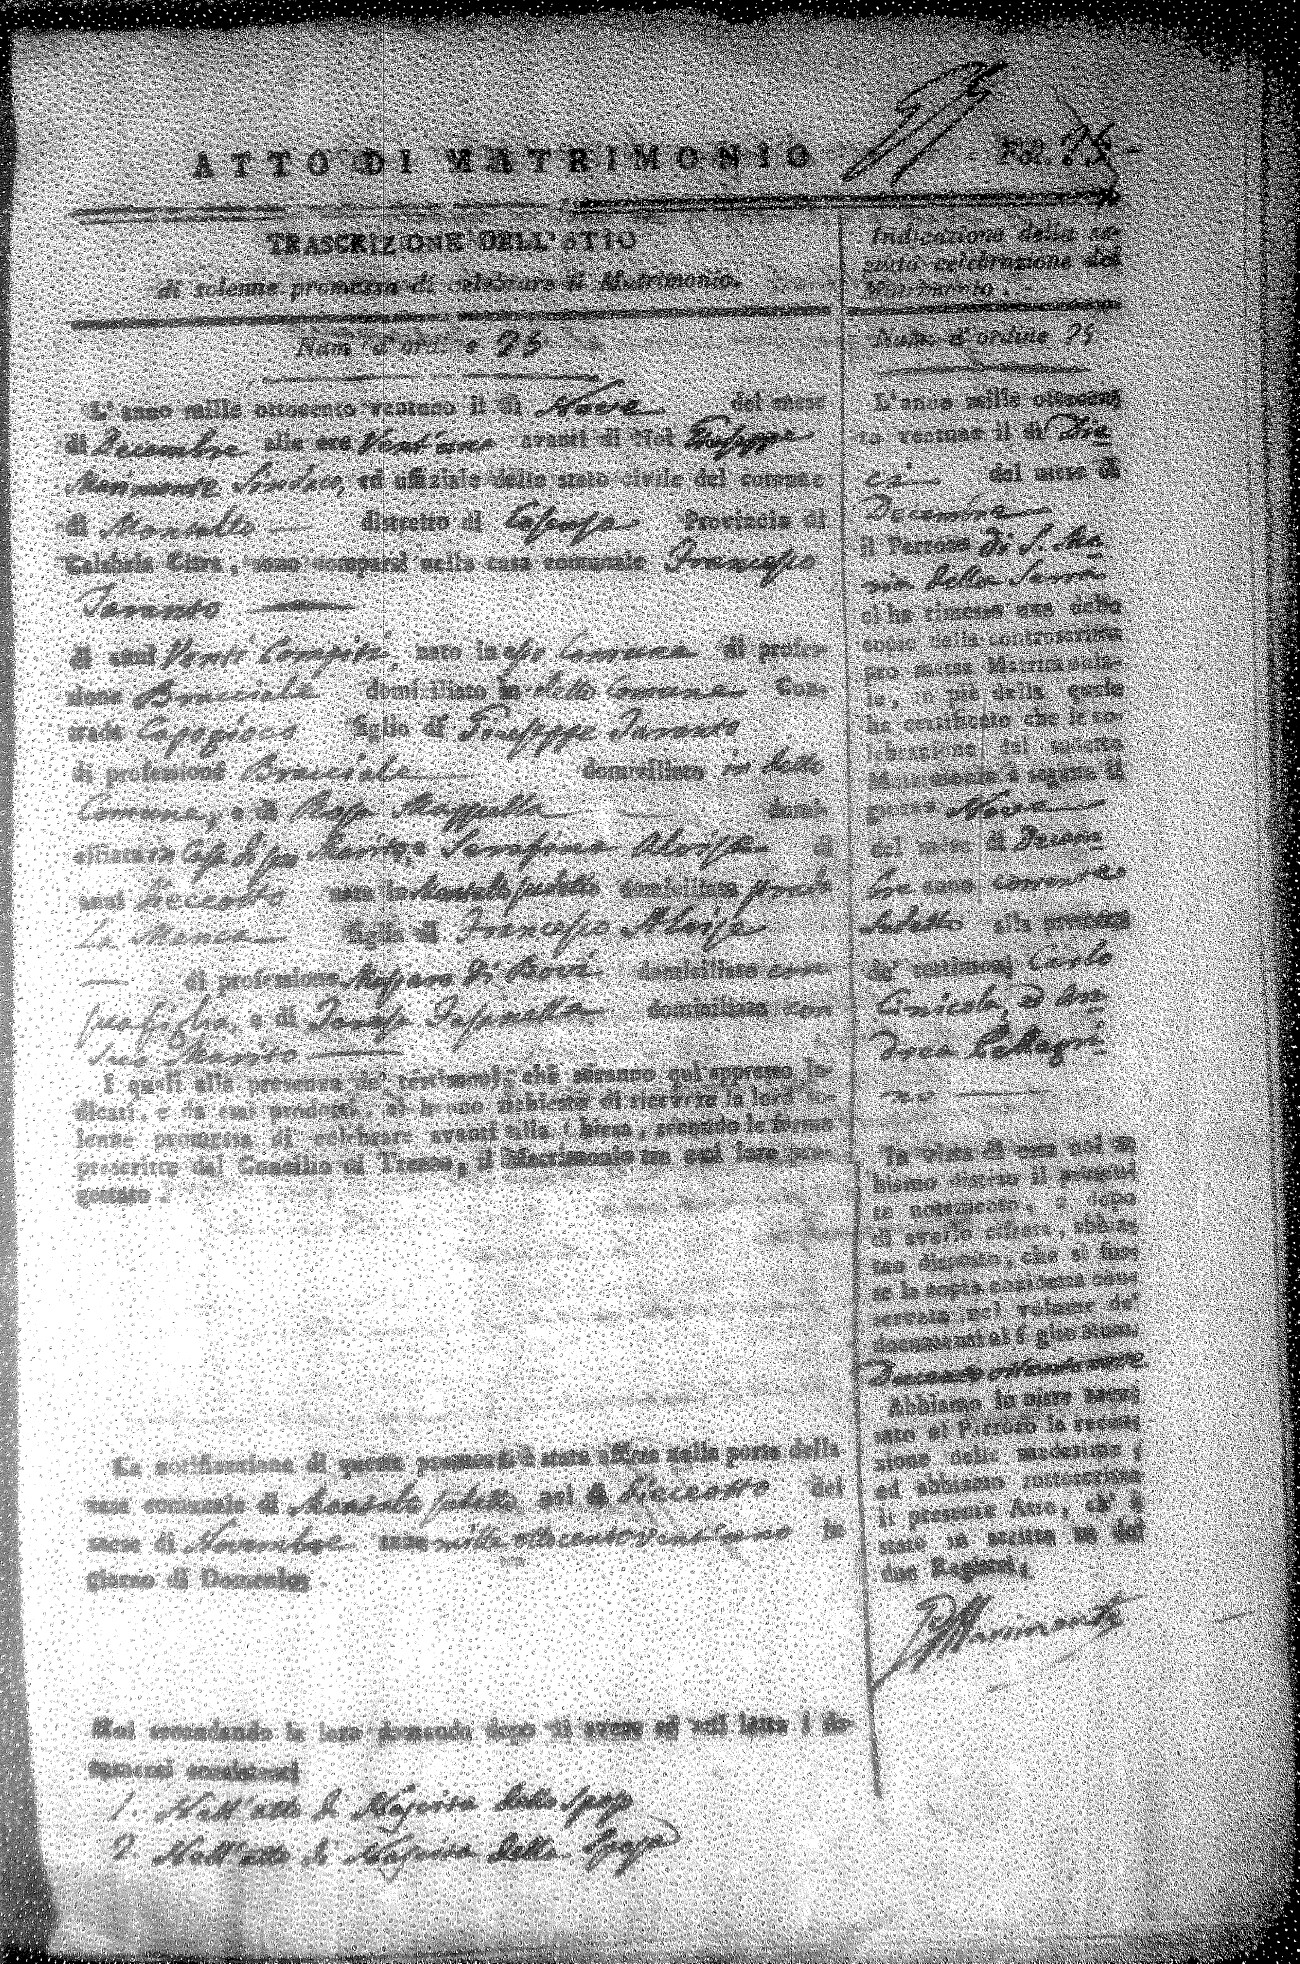 ATTO DI MATRIMONIO
Fol.
TRASCRIZIONE DELL' ATTO
di solenne promessa di celebrare il Matrimonio.
Num. d'ordine 75
L'anno mille ottocento ventuno il di Nove del mese
di Decembre alle ore Vent'une avanti di Noi Giuseppe
Marimonte Sindaco, ed uffiziale dello stato civile del comune
di Montalto distretto di Cosenza Provincia di
Calabria Citra, sono comparsi nella casa comunale Francesco
Taranto
di anni Venti Compiti, nato in esso Comune di profes-
sione Bracciale domiciliato in detto Comune Con-
trada figlio di Giuseppe Taranto
di professione Bracciale domiciliato in detto
Comune, e di Rosa domi-
ciliata in Casa di suo Marito, e Serafina Aloisa di
anni Dieciotto nata in Montalto sudetto domiciliata
La Manca figlia di Francesco Aloisa
di professione domiciliato con
sua figlia, e di domiciliata con
suo Marito
I quali alla presenza de' testimonj, che saranno qui appresso in-
dicati, e da essi prodotti, ci hanno richiesto di ricevere la loro so-
lenne promessa di celebrare avanti alla Chiesa, secondo le forme
prescritte dal Concilio di Trento, il Matrimonio tra essi loro pro-
gettato.
La notificazione di questa promessa è stata affissa nella porta della
casa comunale di Montalto sudetto nel di Dieciotto del
mese di Novembre anno mille ottocento vent'uno in
giorno di Domenica.
Noi secondando la loro domanda dopo di avere ad essi letto i do-
cumenti consistenti
1. Nell'atto di Nascita dello sposo
2. Nell'atto di Nascita della Sposa
Indicazione della se-
guita celebrazione del
Matrimonio.
Num. d'ordine 75
L'anno mille ottocen-
to ventuno il di Die
ci del mese di
Decembre
il Parroco di S. Ma-
ria della Serra
ci ha rimesso una delle
copie della controscritta
promessa Matrimonia-
le, in piè della quale
ha certificato che la ce-
lebrazione del sudetto
Matrimonio è seguita il
giorno Nove
del mese di Decem-
bre anno corrente
sudetto alla presenza
de' testimonj Carlo
Cinicola, ed An-
drea Pellegri-
no
In vista di essa noi ab-
biamo disteso il presen-
te notamento, e dopo
di averlo cifrato, abbia-
mo disposto, che si fus-
se la copia enunciata con-
servata nel volume de'
documenti al foglio num.
Duecento ottantanove
Abbiamo in oltre accu-
sato al Parroco la recez-
zione della medesima,
ed abbiamo sottoscritto
il presente Atto, ch' è
stato in iscritto su dei
due Registri.
Marimonte